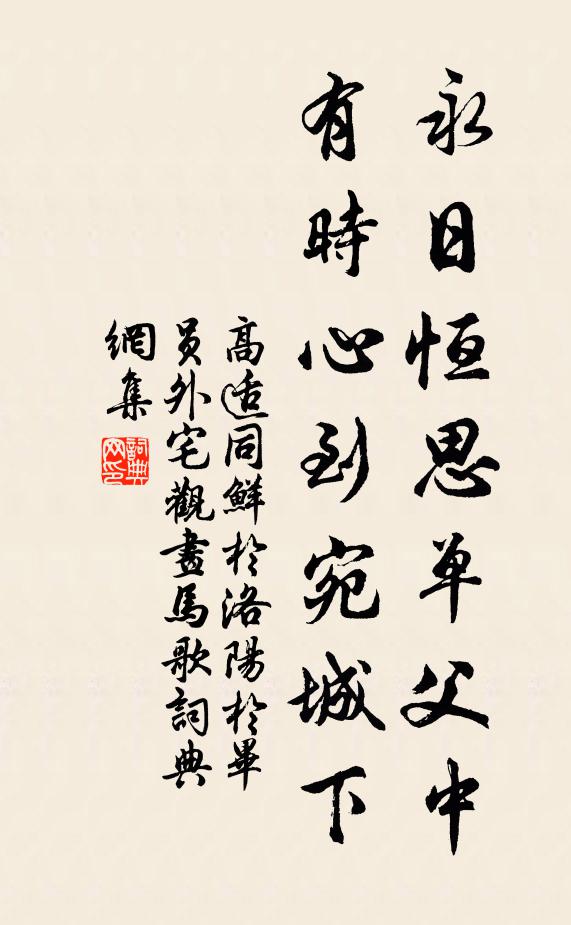 永日恒思单父中
有時心到宛城下
高适同鮮於洛陽於畢
員外宅觀畫馬歌詞典
網集
詞典
网印